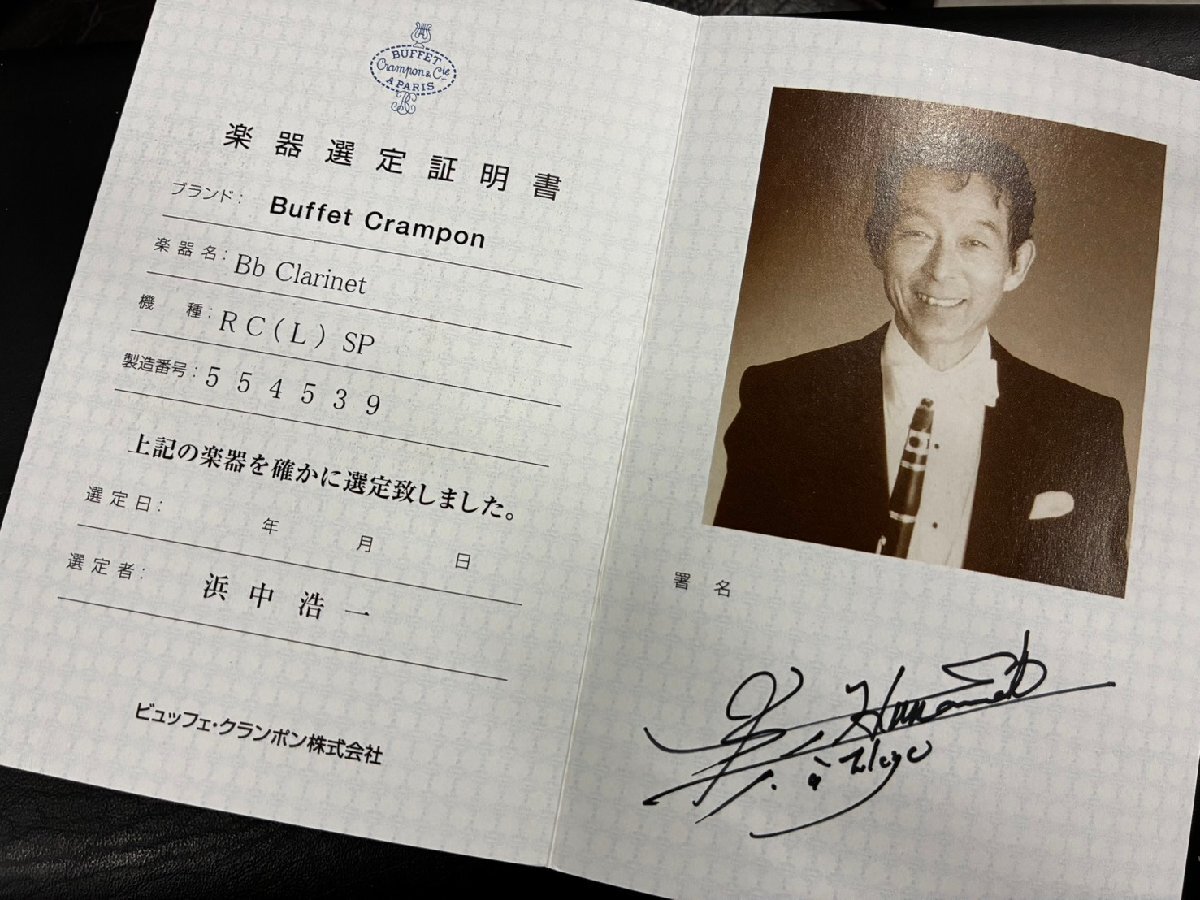 BUFFET
Crampon & Cie
A PARIS
BC
楽器選定証明書
ブランド: Buffet Crampon
楽器名: Bb Clarinet
機種: RC(L) SP
製造番号: 554539
上記の楽器を確かに選定致しました。
選定日: 年 月 日
選定者: 浜中浩一
ビュッフェ・クランポン株式会社
署名